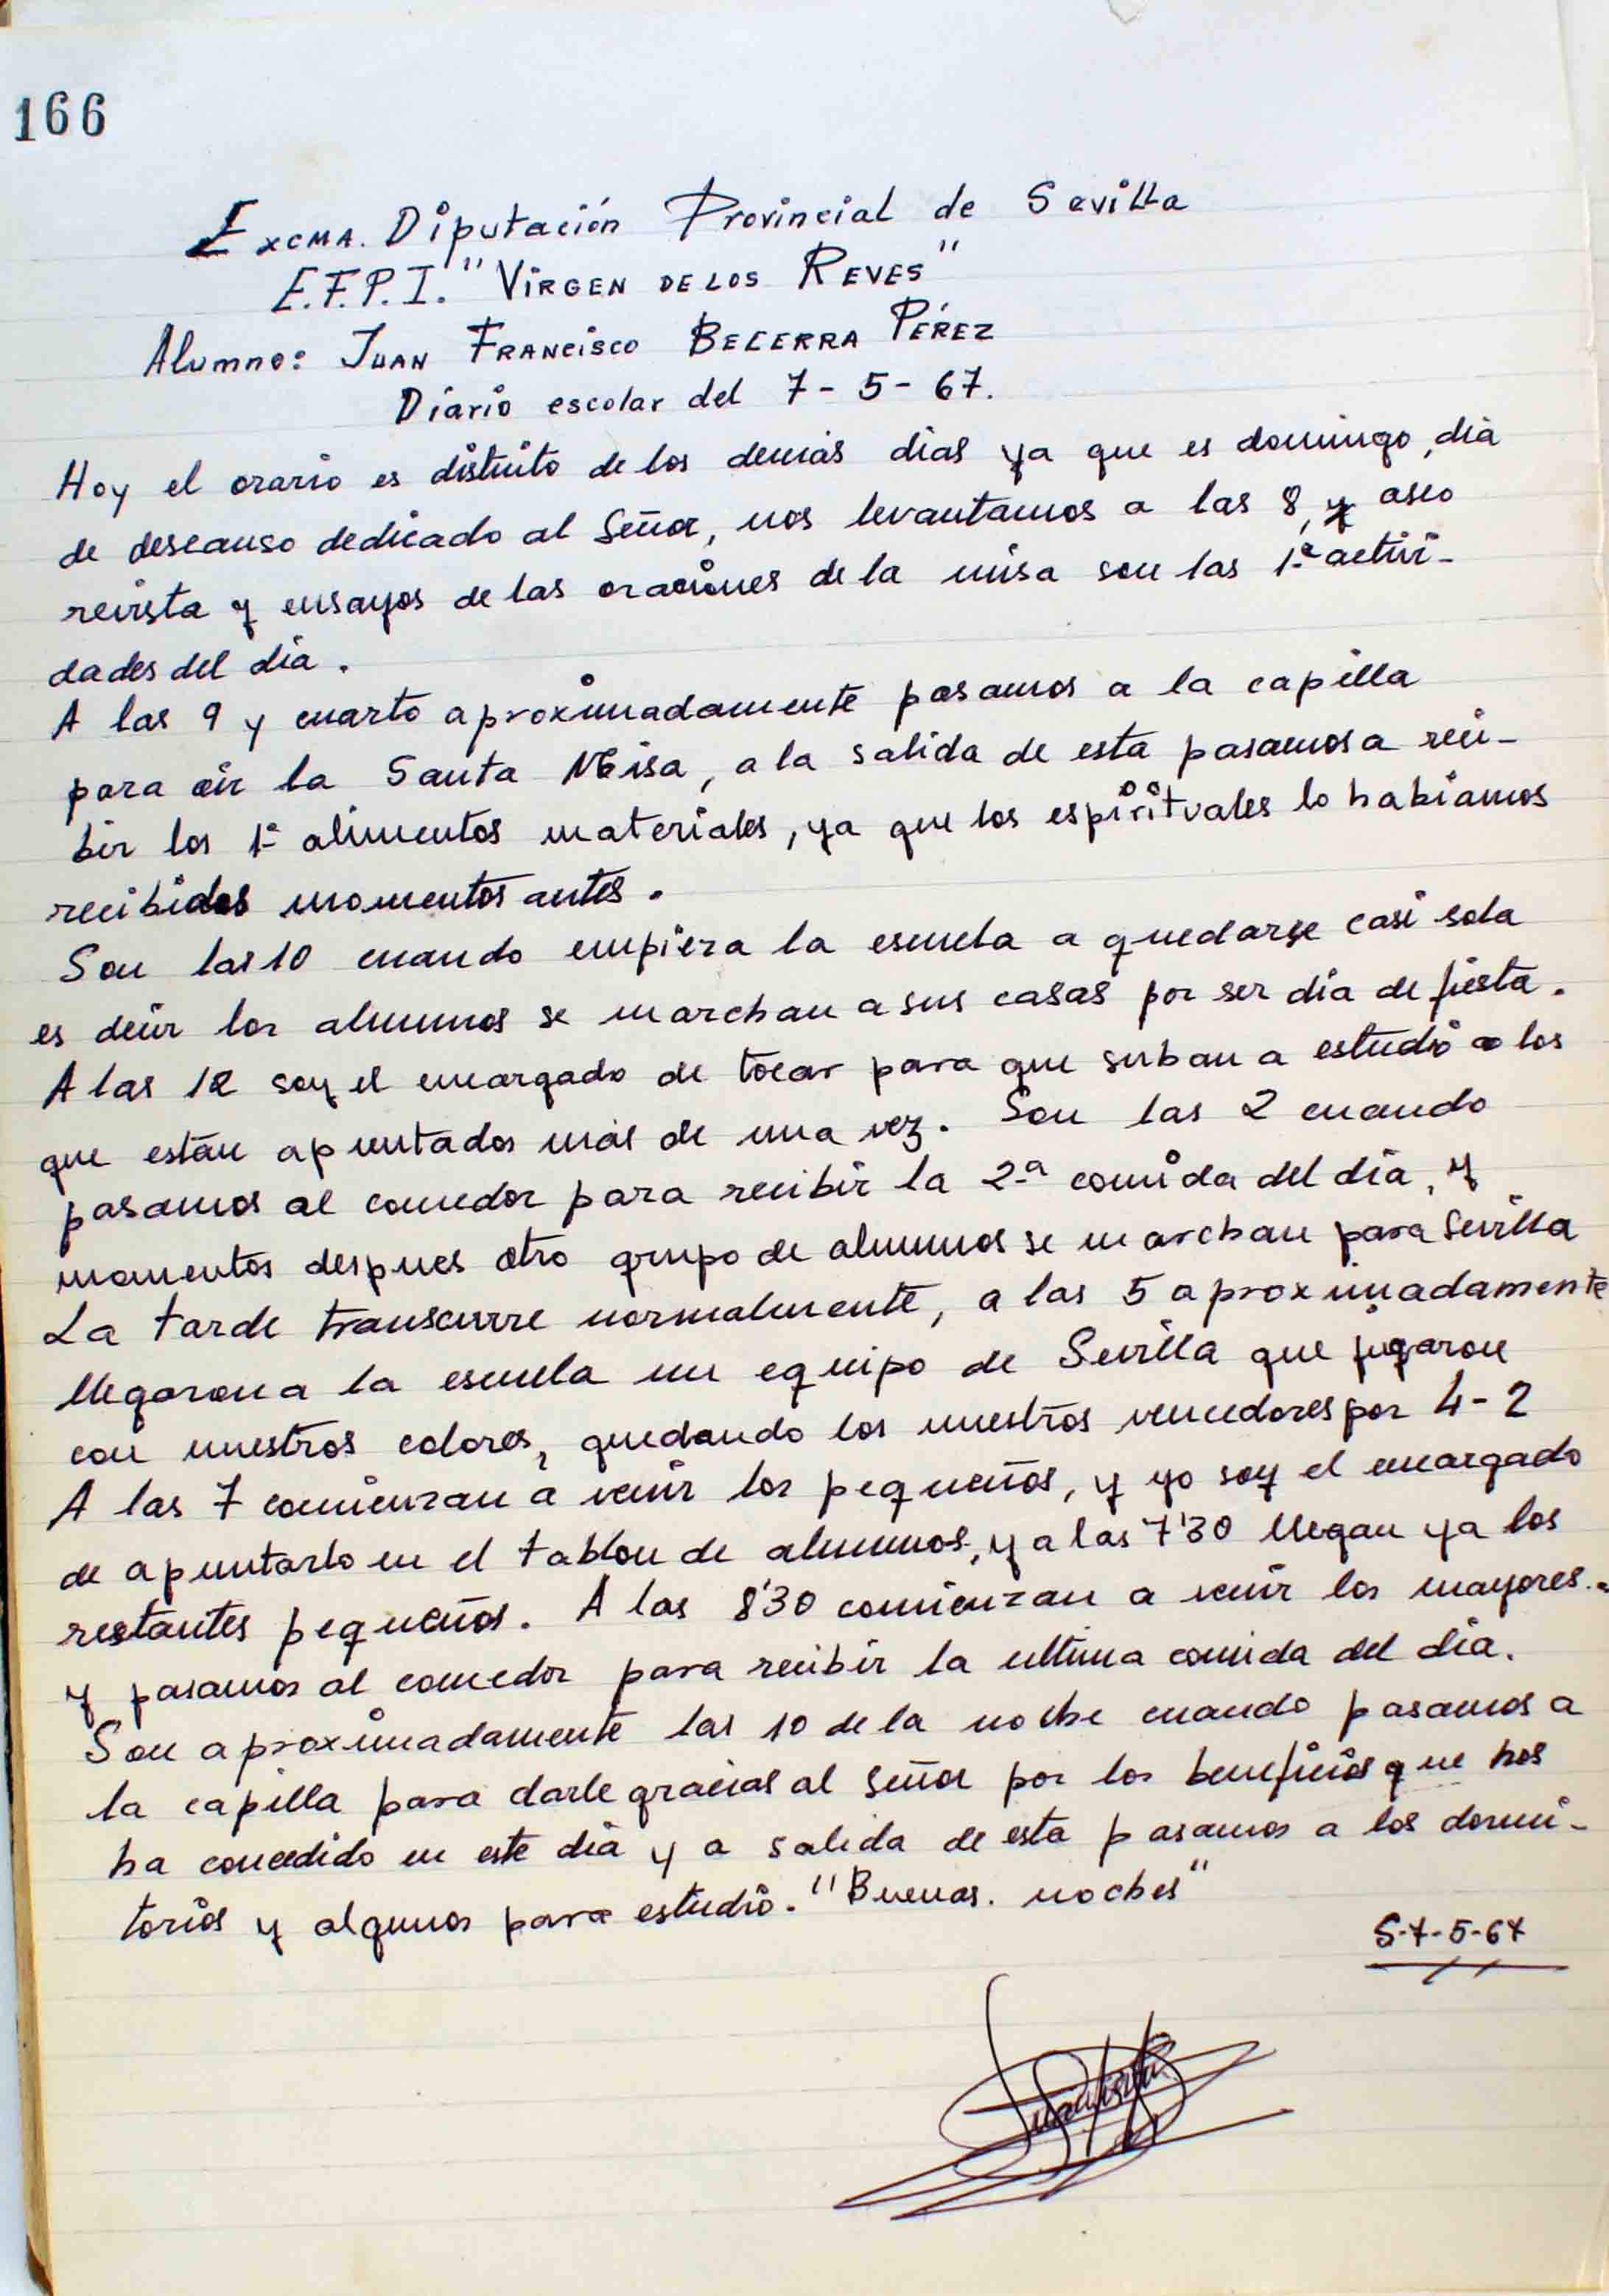 166
Excma. Diputación Provincial de Sevilla
E.F.P.I. "Virgen de los Reyes"
Alumno: Juan Francisco Becerra Pérez
Diario escolar del 7-5-67.
Hoy el orario es distinto de los demás dias ya que es domingo, dia
de descanso dedicado al Señor, nos levantamos a las 8, y aseo
revista y ensayos de las oraciones de la misa son las 1.ª activi-
dades del dia.
A las 9 y cuarto aproximadamente pasamos a la capilla
para oir la Santa Misa, a la salida de esta pasamos a reci-
bir los 1.º alimentos materiales, ya que los espirituales lo habiamos
recibidos momentos antes.
Son las 10 cuando empieza la escuela a quedarse casi sola
es decir los alumnos se marchan a sus casas por ser dia de fiesta.
A las 12 soy el encargado de tocar para que suban a estudio a los
que están apuntados más de una vez. Son las 2 cuando
pasamos al comedor para recibir la 2.ª comida del dia, y
momentos despues otro grupo de alumnos se marchan para Sevilla
La tarde transcurre normalmente, a las 5 aproximadamente
llegaron a la escuela un equipo de Sevilla que jugaron
con nuestros colores, quedando los nuestros vencedores por 4-2
A las 7 comienzan a venir los pequeños, y yo soy el encargado
de apuntarlo en el tablon de alumnos, y a las 7'30 llegan ya los
restantes pequeños. A las 8'30 comienzan a venir los mayores.
y pasamos al comedor para recibir la ultima comida del dia.
Son aproximadamente las 10 de la noche cuando pasamos a
la capilla para darle gracias al Señor por los beneficios que nos
ha concedido en este dia y a salida de esta pasamos a los dormi-
torios y algunos para estudio. "Buenas. noches"
S-7-5-67